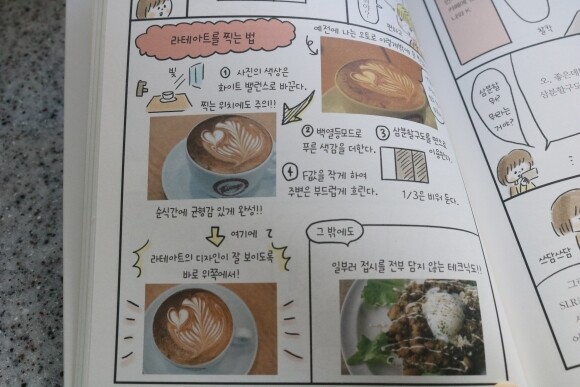 라테아트를 찍는 법
예전에 나는 오토로
빛
① 사진의 색상은
화이트 밸런스로 바꾼다.
찍는 위치에도 주의!!
② 백열등모드로
푸른 색감을 더한다.
③ 삼분할구도를
④ F값을 작게 하여
주변은 부드럽게 흐린다.
1/3은 비워 둔다.
순식간에 균형감 있게 완성!!
여기에
라테아트의 디자인이 잘 보이도록
바로 위쪽에서!
그 밖에도
일부러 접시를 전부 담지 않는 테크닉도!!
찰칵
삼분할
뭐?
뭐라는
거야?
오, 좋은데
삼분할구도
쓰담쓰담
그리
SLR